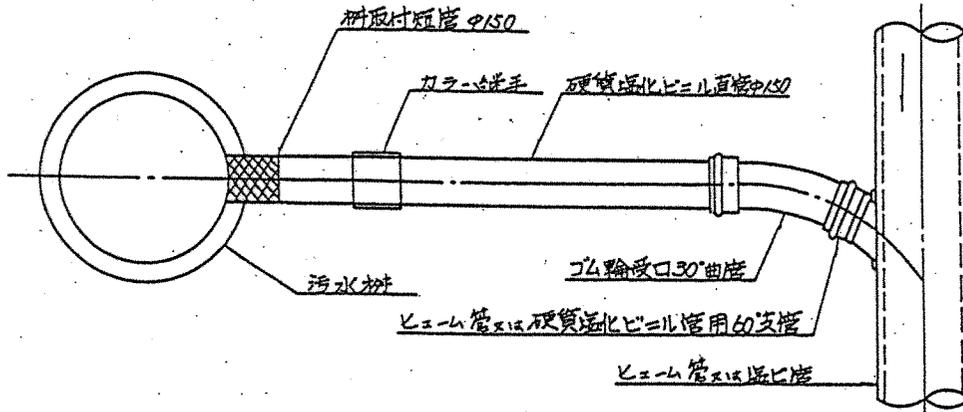 桝取付短管 φ150
カラー継手
硬質塩化ビニル直管φ150
ゴム輪受口30°曲管
汚水桝
ヒューム管又は硬質塩化ビニル管用60°支管
ヒューム管又は塩ビ管